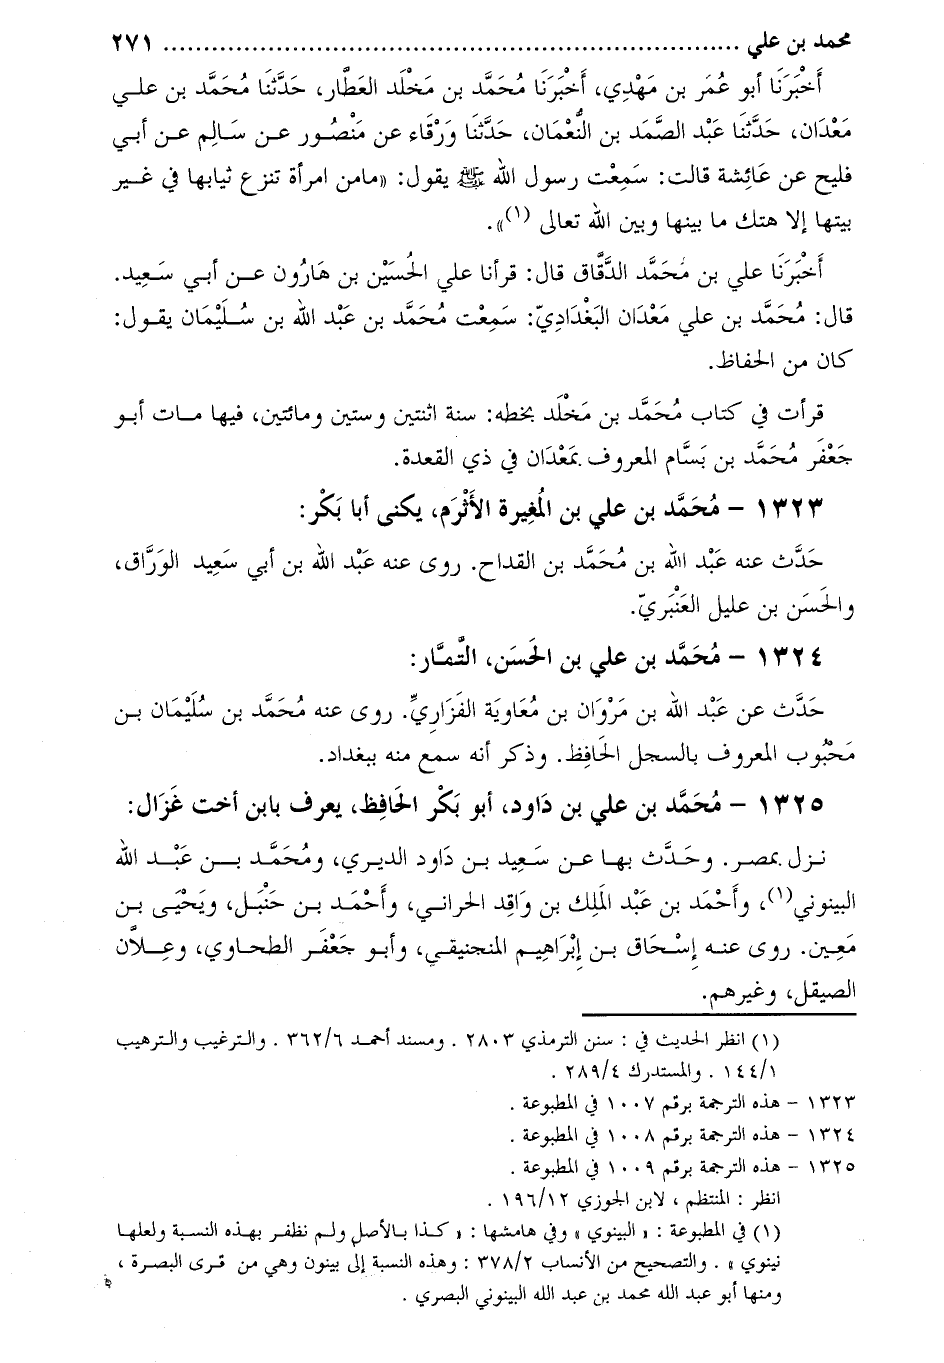 محمد بن علي ........................................................................ ٢٧١
أَخْبَرَنَا أبو عُمَر بن مَهْدِي، أَخْبَرَنَا مُحَمَّد بن مَخْلَد العَطَّار، حَدَّثنَا مُحَمَّد بن علي
مَعْدَان، حَدَّثنَا عَبْد الصَّمَد بن النُّعْمَان، حَدَّثنَا وَرْقَاء عن مَنْصُور عن سَالِم عن أبي
فليح عن عَائِشة قالت: سَمِعْت رسول الله ﷺ يقول: «مامن امرأة تنزع ثيابها في غير
بيتها إلا هتك ما بينها وبين الله تعالى (١)».
أَخْبَرَنَا علي بن مُحَمَّد الدَّقَّاق قال: قرأنا علي الحُسَيْن بن هَارُون عن أبي سَعِيد.
قال: مُحَمَّد بن علي مَعْدَان البَغْدَادِيّ: سَمِعْت مُحَمَّد بن عَبْد الله بن سُلَيْمَان يقول:
كان من الحفاظ.
قرأت في كتاب مُحَمَّد بن مَخْلَد بخطه: سنة اثنتين وستين ومائتين، فيها مات أبو
جَعْفَر مُحَمَّد بن بَسَّام المعروف بمَعْدَان في ذي القعدة.
١٣٢٣ - مُحَمَّد بن علي بن المُغِيرة الأَثْرَم، يكنى أبا بَكْر:
حَدَّث عنه عَبْد الله بن مُحَمَّد بن القداح. روى عنه عَبْد الله بن أبي سَعِيد الوَرَّاق،
والحَسَن بن عليل العَنْبَريّ.
١٣٢٤ - مُحَمَّد بن علي بن الحَسَن، التَّمَّار:
حَدَّث عن عَبْد الله بن مَرْوَان بن مُعَاوِيَة الفَزَارِيِّ. روى عنه مُحَمَّد بن سُلَيْمَان بن
مَحْبُوب المعروف بالسجل الحَافِظ. وذكر أنه سمع منه ببغداد.
١٣٢٥ - مُحَمَّد بن علي بن دَاود، أبو بَكْر الحَافِظ، يعرف بابن أخت غَزَال:
نزل بمصر. وحَدَّث بها عن سَعِيد بن دَاود الديري، ومُحَمَّد بن عَبْد الله
البينوني(١)، وأَحْمَد بن عَبْد المَلِك بن وَاقِد الحراني، وأَحْمَد بن حَنْبَل، ويَحْيَى بن
مَعِين. روى عنه إسْحَاق بن إبْرَاهِيم المنجنيقي، وأبو جَعْفَر الطحاوي، وعِلَّان
الصيقل، وغيرهم.
(١) انظر الحديث في : سنن الترمذي ٢٨٠٣ . ومسند أحمد ٣٦٢/٦ . والترغيب والترهيب
١٤٤/١ . والمستدرك ٢٨٩/٤ .
١٣٢٣ - هذه الترجمة برقم ١٠٠٧ في المطبوعة .
١٣٢٤ - هذه الترجمة برقم ١٠٠٨ في المطبوعة .
١٣٢٥ - هذه الترجمة برقم ١٠٠٩ في المطبوعة .
انظر : المنتظم ، لابن الجوزي ١٩٦/١٢ .
(١) في المطبوعة : « البينوي » وفي هامشها : « كذا بالأصل ولم نظفر بهذه النسبة ولعلها
نينوي » . والتصحيح من الأنساب ٣٧٨/٢ : وهذه النسبة إلى بينون وهي من قرى البصرة ،
ومنها أبو عبد الله محمد بن عبد الله البينوني البصري .